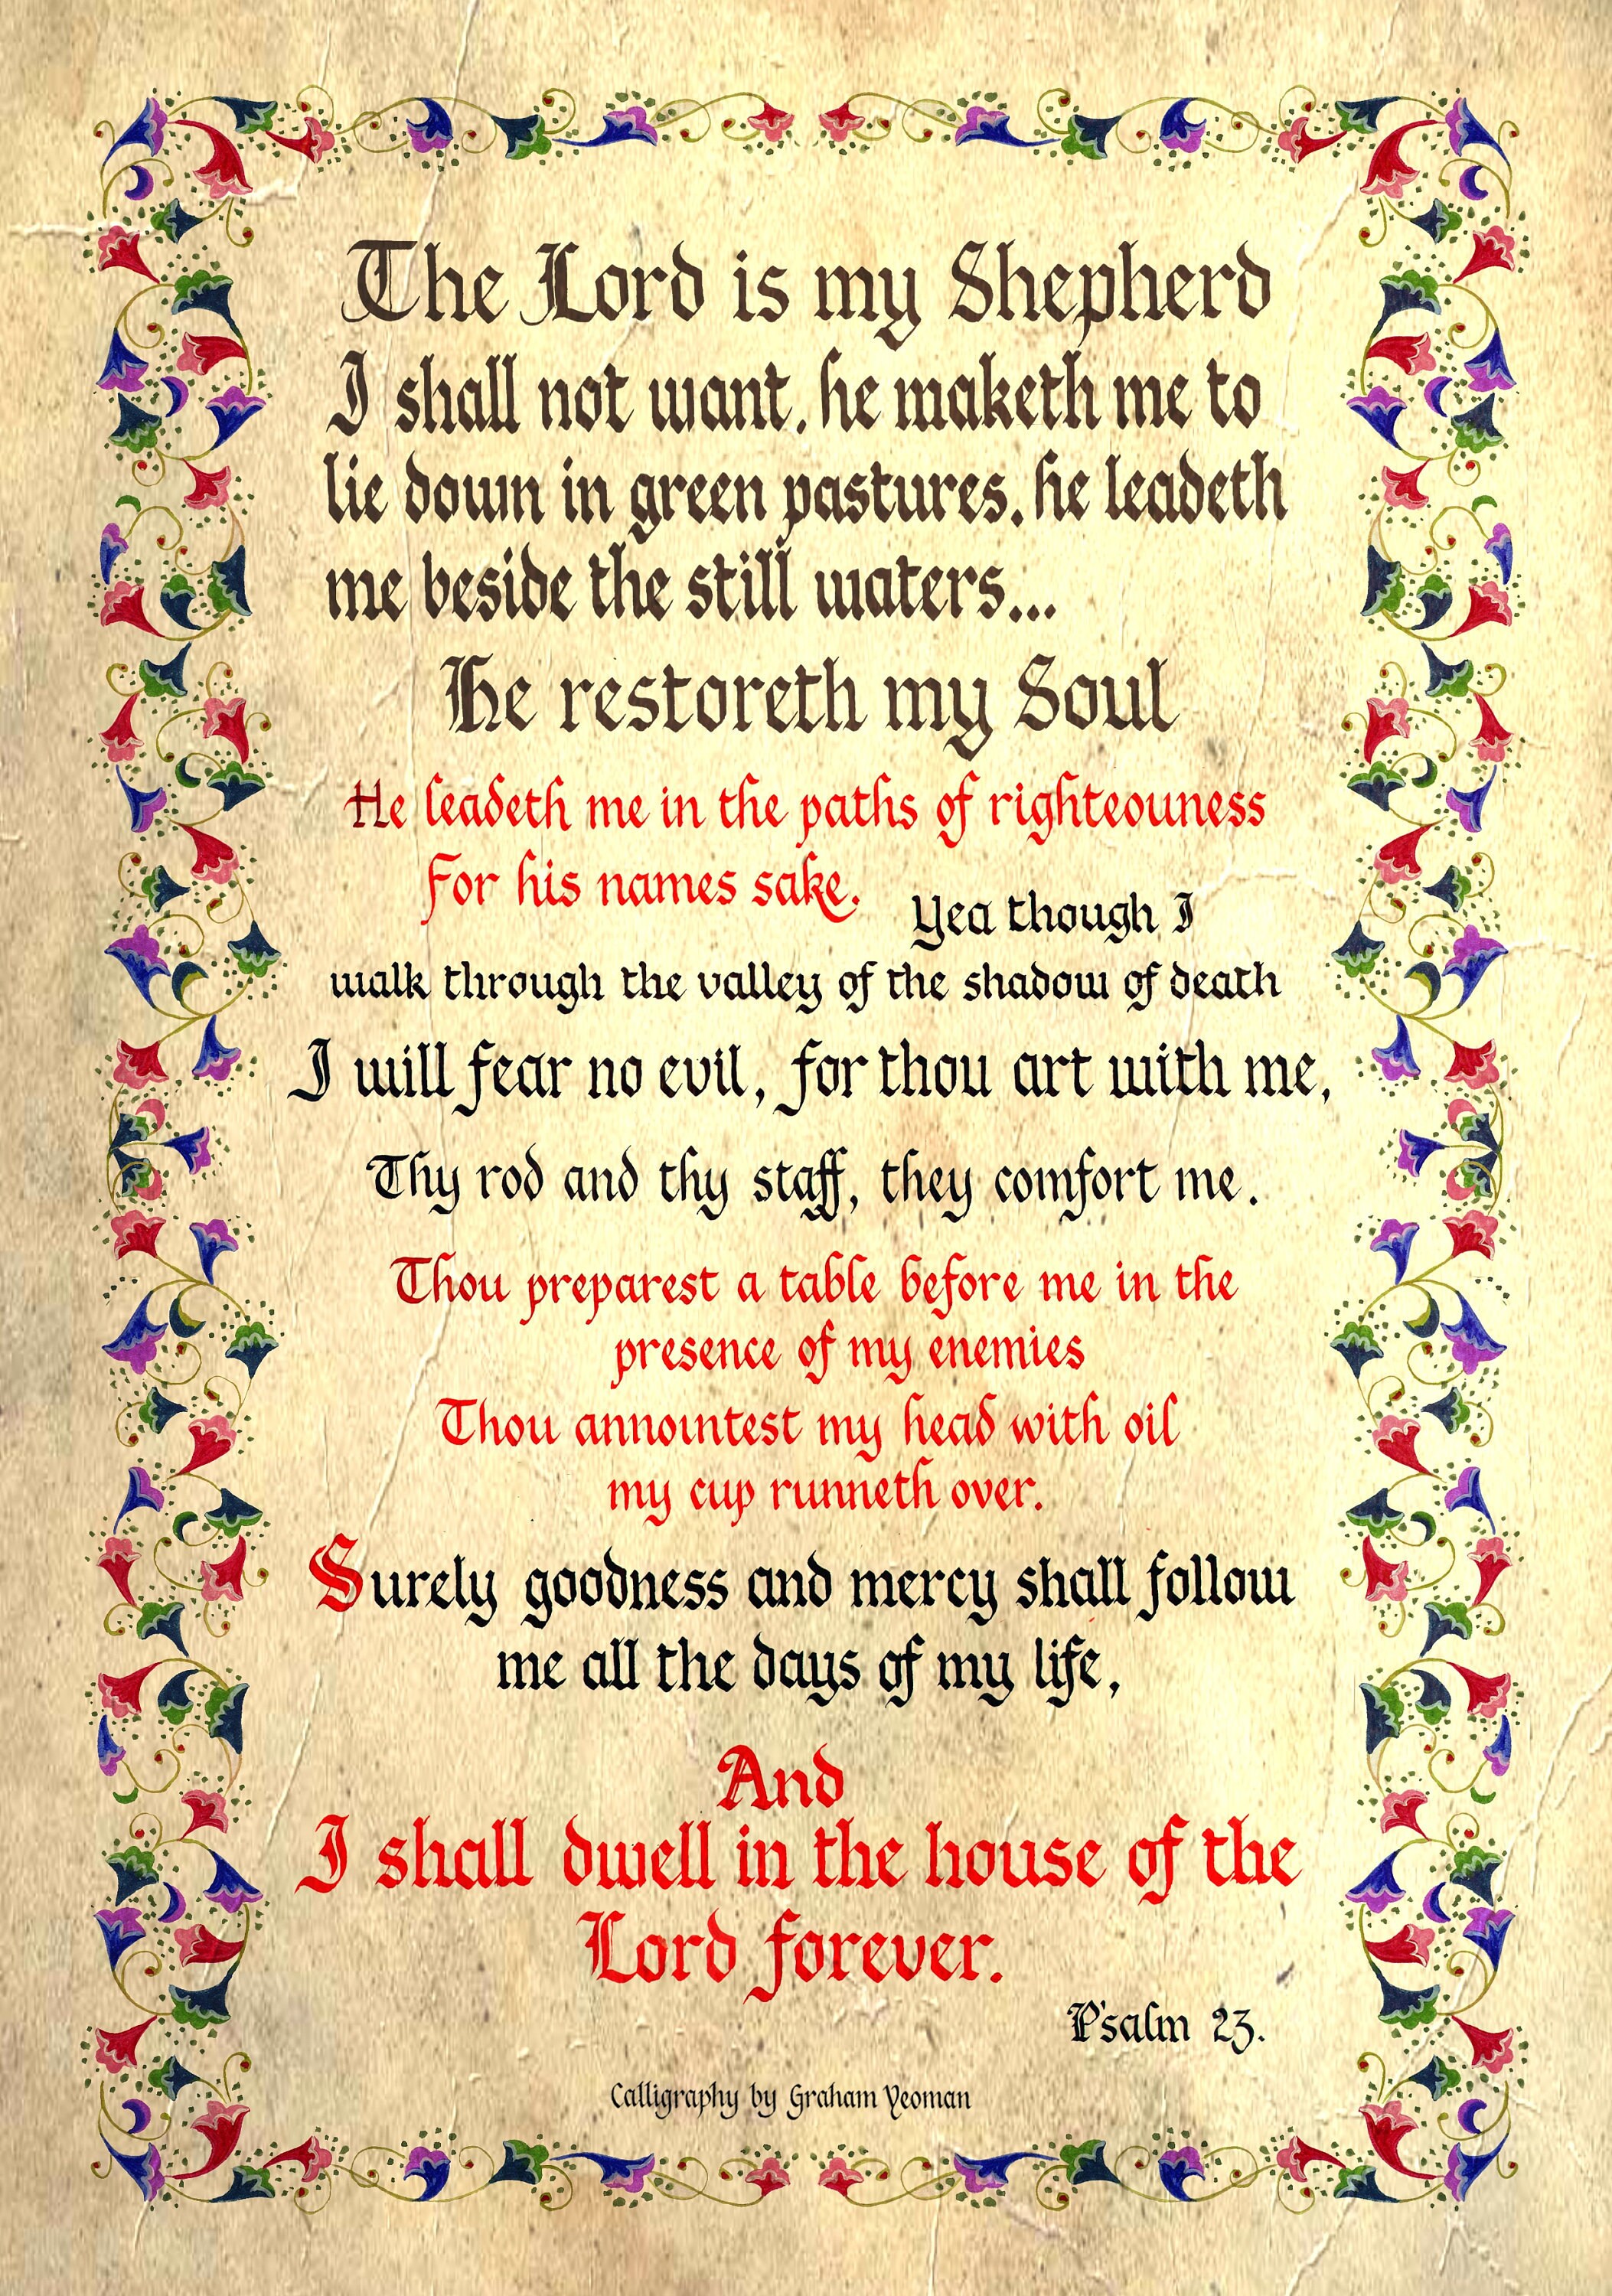 The Lord is my Shepherd
I shall not want. he maketh me to
lie down in green pastures. he leadeth
me beside the still waters...
He restoreth my Soul
He leadeth me in the paths of righteouness
For his names sake.
Yea though I
walk through the valley of the shadow of death
I will fear no evil, for thou art with me,
Thy rod and thy staff, they comfort me.
Thou preparest a table before me in the
presence of my enemies
Thou annointest my head with oil
my cup runneth over.
Surely goodness and mercy shall follow
me all the days of my life,
And
I shall dwell in the house of the
Lord forever.
Psalm 23.
Calligraphy by Graham Yeoman